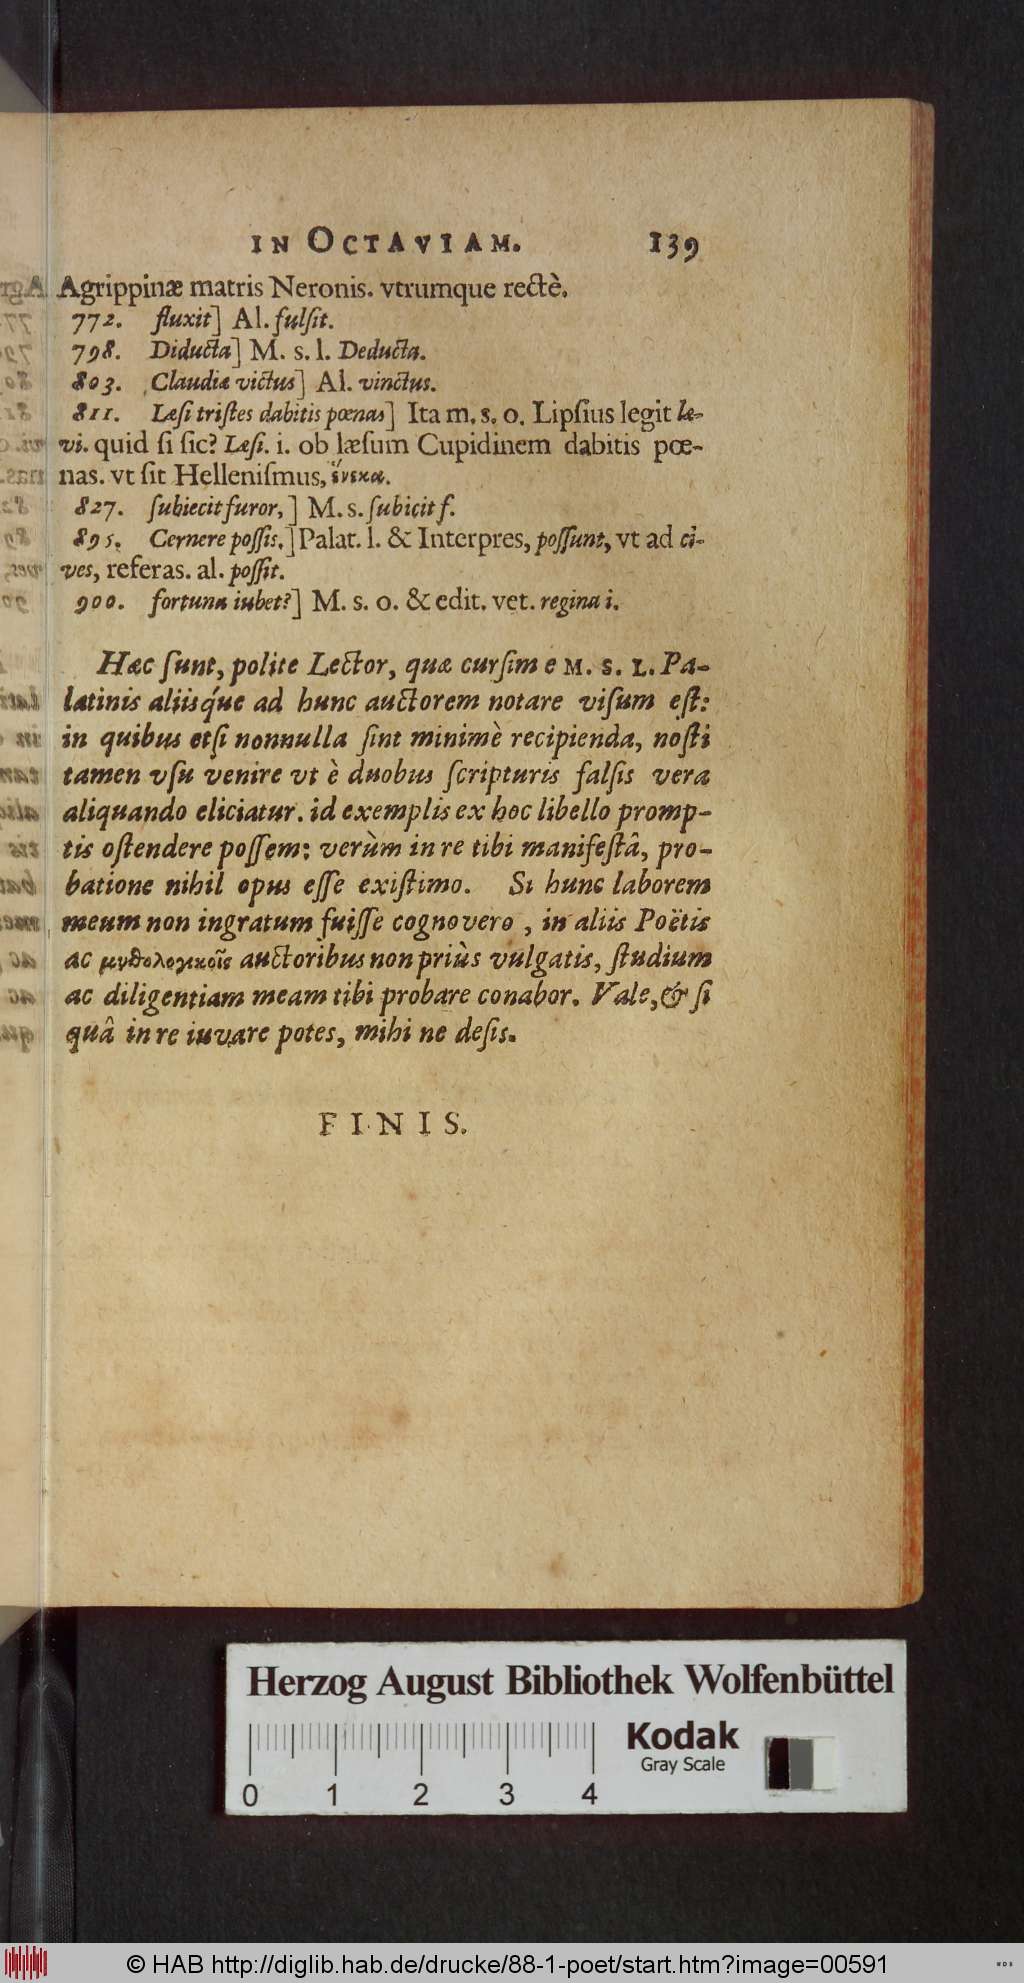 IN OCTAVIAM. 139
Agrippinæ matris Neronis. vtrumque rectè.
772. fluxit] Al. fulſit.
798. Diducta] M. s. l. Deducta.
803. Claudiæ victus] Al. vinctus.
811. Læſi triſtes dabitis pœnas] Ita m. s. o. Lipſius legit le-
vi. quid ſi ſic? Læſi. i. ob læſum Cupidinem dabitis pœ-
nas. vt ſit Helleniſmus, ἕνεκα.
827. ſubiecit furor,] M. s. ſubicit f.
895. Cernere poſſis.] Palat. l. & Interpres, poſſunt, vt ad ci-
ves, referas. al. poſſit.
900. fortuna iubet?] M. s. o. & edit. vet. regina i.
Hæc ſunt, polite Lector, quæ curſim e M. S. L. Pa-
latinis aliisq́ue ad hunc auctorem notare viſum eſt:
in quibus etſi nonnulla ſint minimè recipienda, noſti
tamen vſu venire vt è duobus ſcripturis falſis vera
aliquando eliciatur. id exemplis ex hoc libello promp-
tis oſtendere poſſem: verùm in re tibi manifeſtâ, pro-
batione nihil opus eſſe exiſtimo. Si hunc laborem
meum non ingratum fuiſſe cognovero, in aliis Poëtis
ac μυθολογικοῖς auctoribus non priùs vulgatis, ſtudium
ac diligentiam meam tibi probare conabor. Vale, & ſi
quâ in re iuvare potes, mihi ne deſis.
FINIS.
Herzog August Bibliothek Wolfenbüttel
Kodak
Gray Scale
0 1 2 3 4
© HAB http://diglib.hab.de/drucke/88-1-poet/start.htm?image=00591